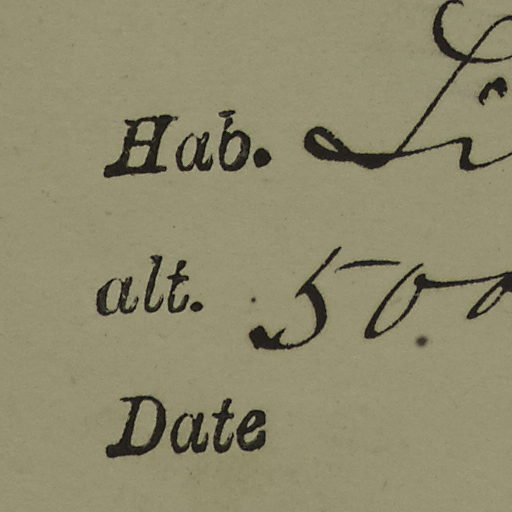 Hab. Li
alt. 500
Date